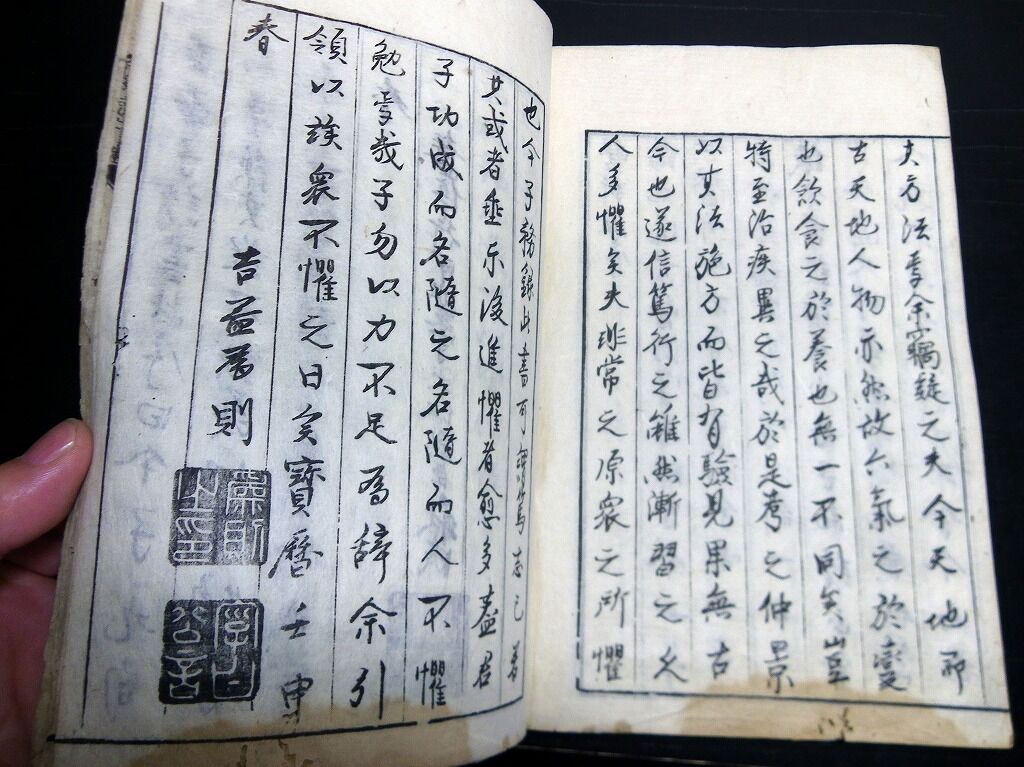 夫方法乎余竊疑之夫今天地即
古天地人物亦然故六氣之於變
也飲食之於養也無一不同矣豈
特至治疾異之哉於是考之仲景
以其法施方而皆有驗見果無古
今也遂信篤行之雖然漸習之久
人多懼矣夫非常之原衆之所懼
也今子務錄此書可謂篤志已若
其或者垂示後進懼者愈多蓋君
子功成而名隨之名隨而人不懼
勉乎哉子勿以力不足為辞余引
領以竢衆不懼之日矣寶曆壬申
春
吉益為則
為則之印
字曰公言